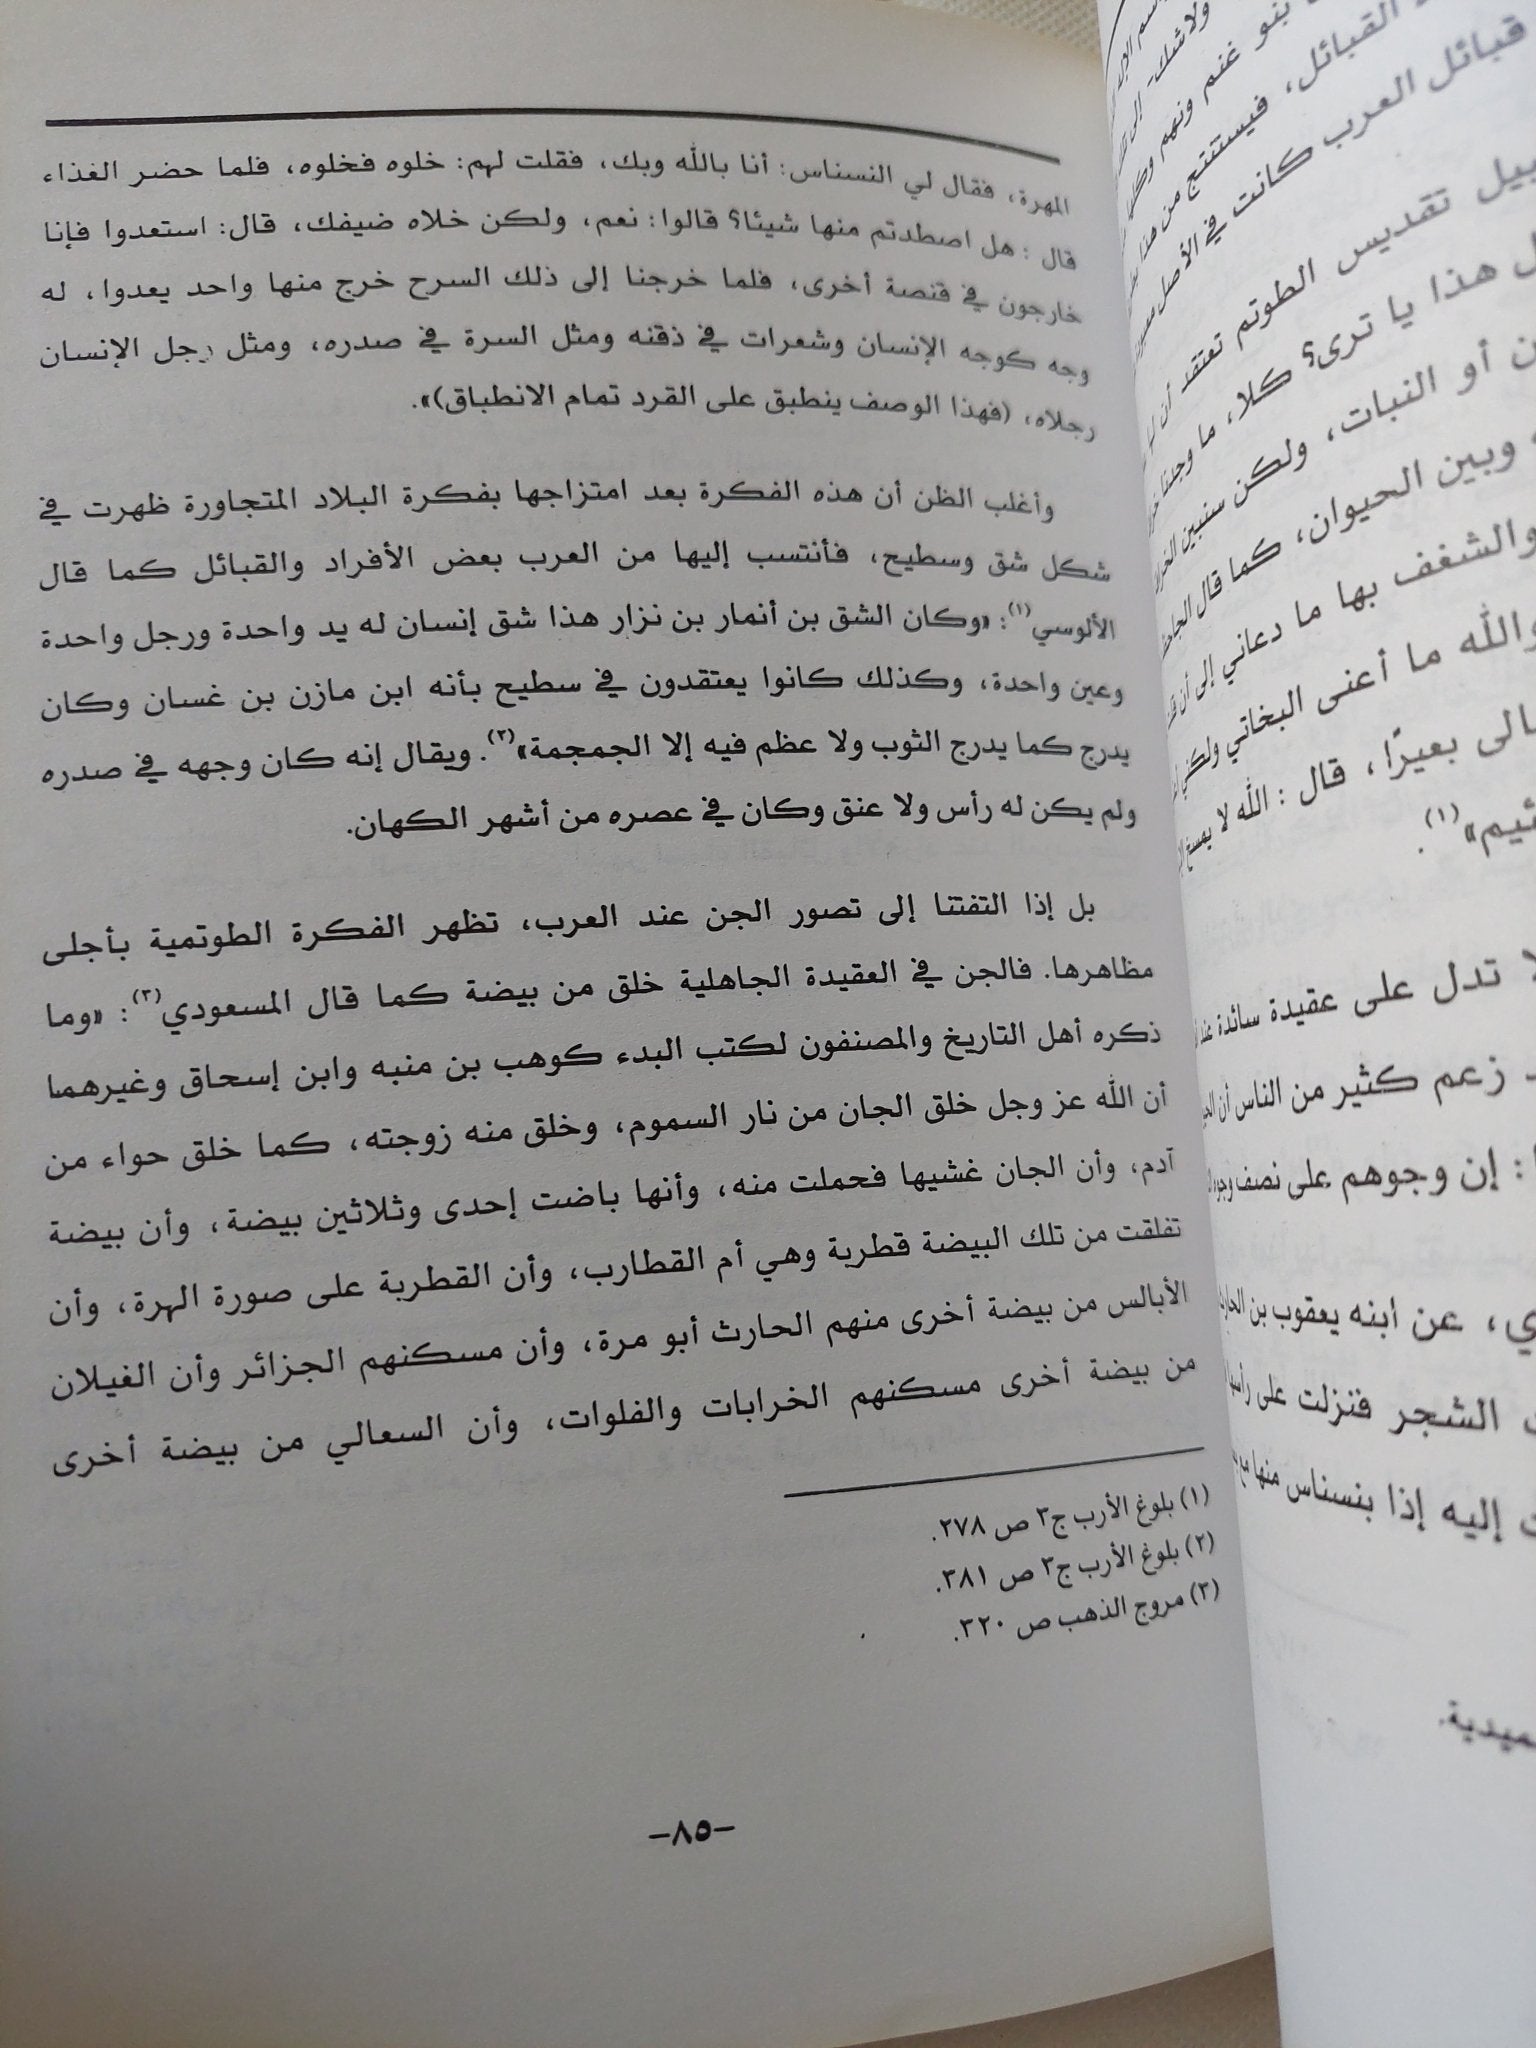 المهرة، فقال لي النسناس: أنا بالله وبك، فقلت لهم: خلوه فخلوه، فلما حضر الغذاء
قال: هل اصطدتم منها شيئا؟ قالوا: نعم، ولكن خلاه ضيفك، قال: استعدوا فإنا
خارجون في قنصة أخرى، فلما خرجنا إلى ذلك السرح خرج منها واحد يعدوا، له
وجه كوجه الإنسان وشعرات في ذقنه ومثل السرة في صدره، ومثل رجل الإنسان
رجلاه، (فهذا الوصف ينطبق على القرد تمام الانطباق)».
وأغلب الظن أن هذه الفكرة بعد امتزاجها بفكرة البلاد المتجاورة ظهرت في
شكل شق وسطيح، فأنتسب إليها من العرب بعض الأفراد والقبائل كما قال
الألوسي(١): «وكان الشق بن أنمار بن نزار هذا شق إنسان له يد واحدة ورجل واحدة
وعين واحدة، وكذلك كانوا يعتقدون في سطيح بأنه ابن مازن بن غسان وكان
يدرج كما يدرج الثوب ولا عظم فيه إلا الجمجمة»(٢). ويقال إنه كان وجهه في صدره
ولم يكن له رأس ولا عنق وكان في عصره من أشهر الكهان.
بل إذا التفتنا إلى تصور الجن عند العرب، تظهر الفكرة الطوتمية بأجلى
مظاهرها. فالجن في العقيدة الجاهلية خلق من بيضة كما قال المسعودي(٣): «وما
ذكره أهل التاريخ والمصنفون لكتب البدء كوهب بن منبه وابن إسحاق وغيرهما
أن الله عز وجل خلق الجان من نار السموم، وخلق منه زوجته، كما خلق حواء من
آدم، وأن الجان غشيها فحملت منه، وأنها باضت إحدى وثلاثين بيضة، وأن بيضة
تفلقت من تلك البيضة قطربة وهي أم القطارب، وأن القطربة على صورة الهرة، وأن
الأبالس من بيضة أخرى منهم الحارث أبو مرة، وأن مسكنهم الجزائر وأن الغيلان
من بيضة أخرى مسكنهم الخرابات والفلوات، وأن السعالي من بيضة أخرى
(١) بلوغ الأرب ج٣ ص ٢٧٨.
(٢) بلوغ الأرب ج٣ ص ٣٨١.
(٣) مروج الذهب ص ٣٢٠.
-٨٥-
بنو غنم ونهم
القبائل، فيستنتج من هذا
قبائل العرب كانت في الأصل
تقديس الطوتم تعتقد أن
هذا يا ترى؟ كلا، ما وجدنا
أو النبات، ولكن سنبين
وبين الحيوان، كما قال
والشغف بها ما دعاني إلى أن
والله ما أعنى البخاتي ولكني
بعيرًا، قال: الله لا يمسخ
(١).
تدل على عقيدة سائدة عند
زعم كثير من الناس أن
: إن وجوههم على نصف وجوه
، عن ابنه يعقوب بن الحارث
الشجر فنزلت على رأسها
إليه إذا بنسناس منها مع